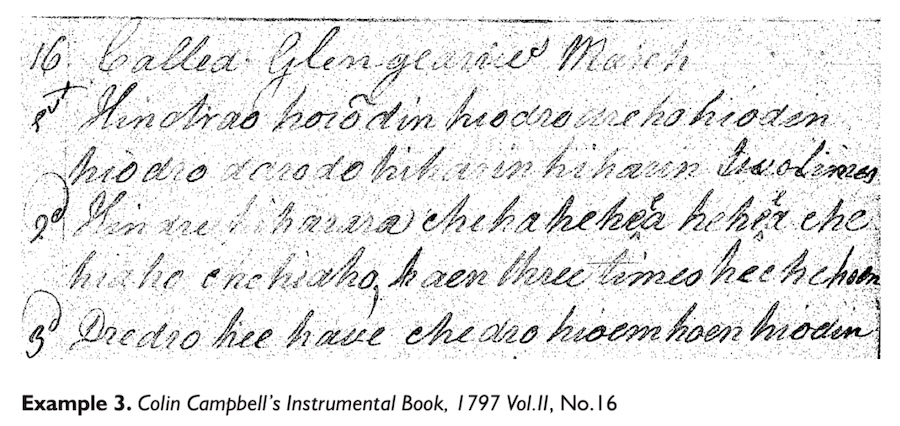 16. Called Glengearrie's March
1st Hindirao horodin hiodro dreho hiodin
hiodro darodo hiharin hiharin two times
2d Hindre hiharara cheha hehea hehea che
hiaho che hiaho, haen three times hee hehoen
3d Dredro hee have chedro hioem hoen hiodin
Example 3. Colin Campbell's Instrumental Book, 1797 Vol.II, No.16